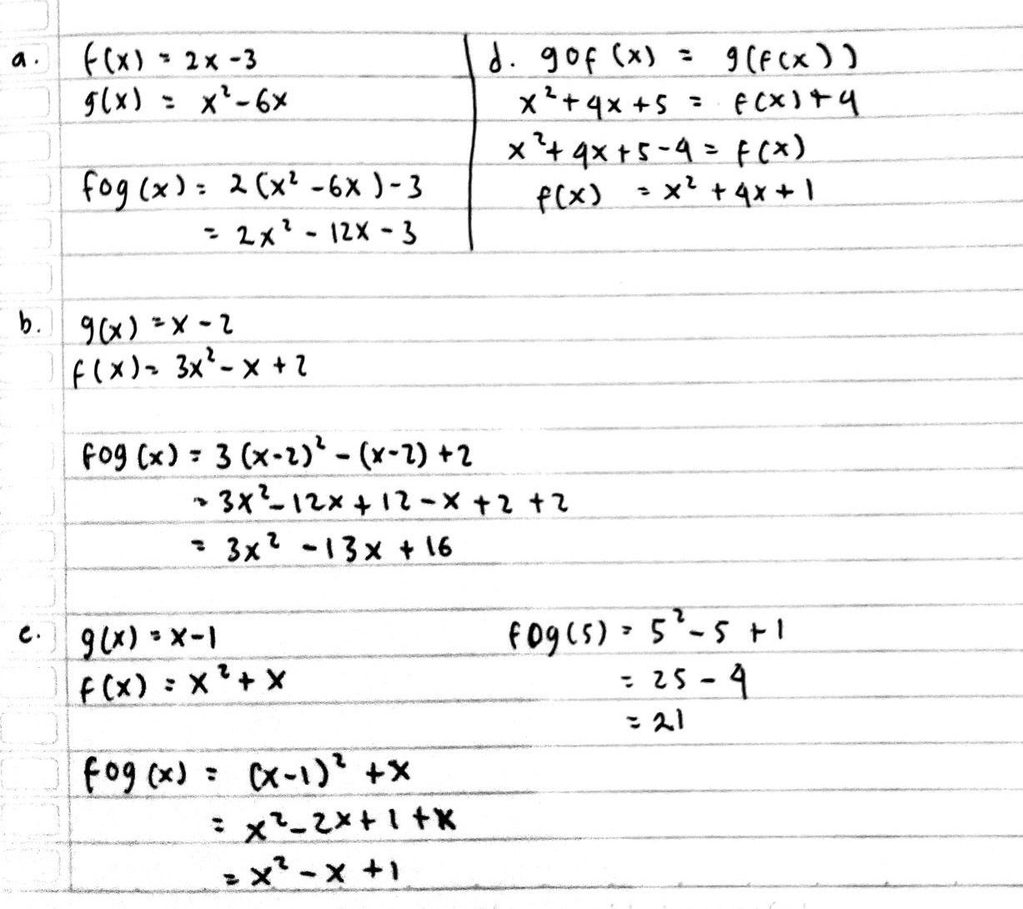 a. f(x) = 2x - 3
g(x) = x² - 6x
fog (x) = 2 (x² - 6x) - 3
= 2x² - 12x - 3
d. gof (x) = g(f(x))
x² + 4x + 5 = f(x) + 4
x² + 4x + 5 - 4 = f(x)
f(x) = x² + 4x + 1
b. g(x) = x - 2
f(x) = 3x² - x + 2
fog (x) = 3 (x-2)² - (x-2) + 2
= 3x² - 12x + 12 - x + 2 + 2
= 3x² - 13x + 16
c. g(x) = x - 1
f(x) = x² + x
fog (x) = (x-1)² + x
= x² - 2x + 1 + x
= x² - x + 1
fog (5) = 5² - 5 + 1
= 25 - 4
= 21